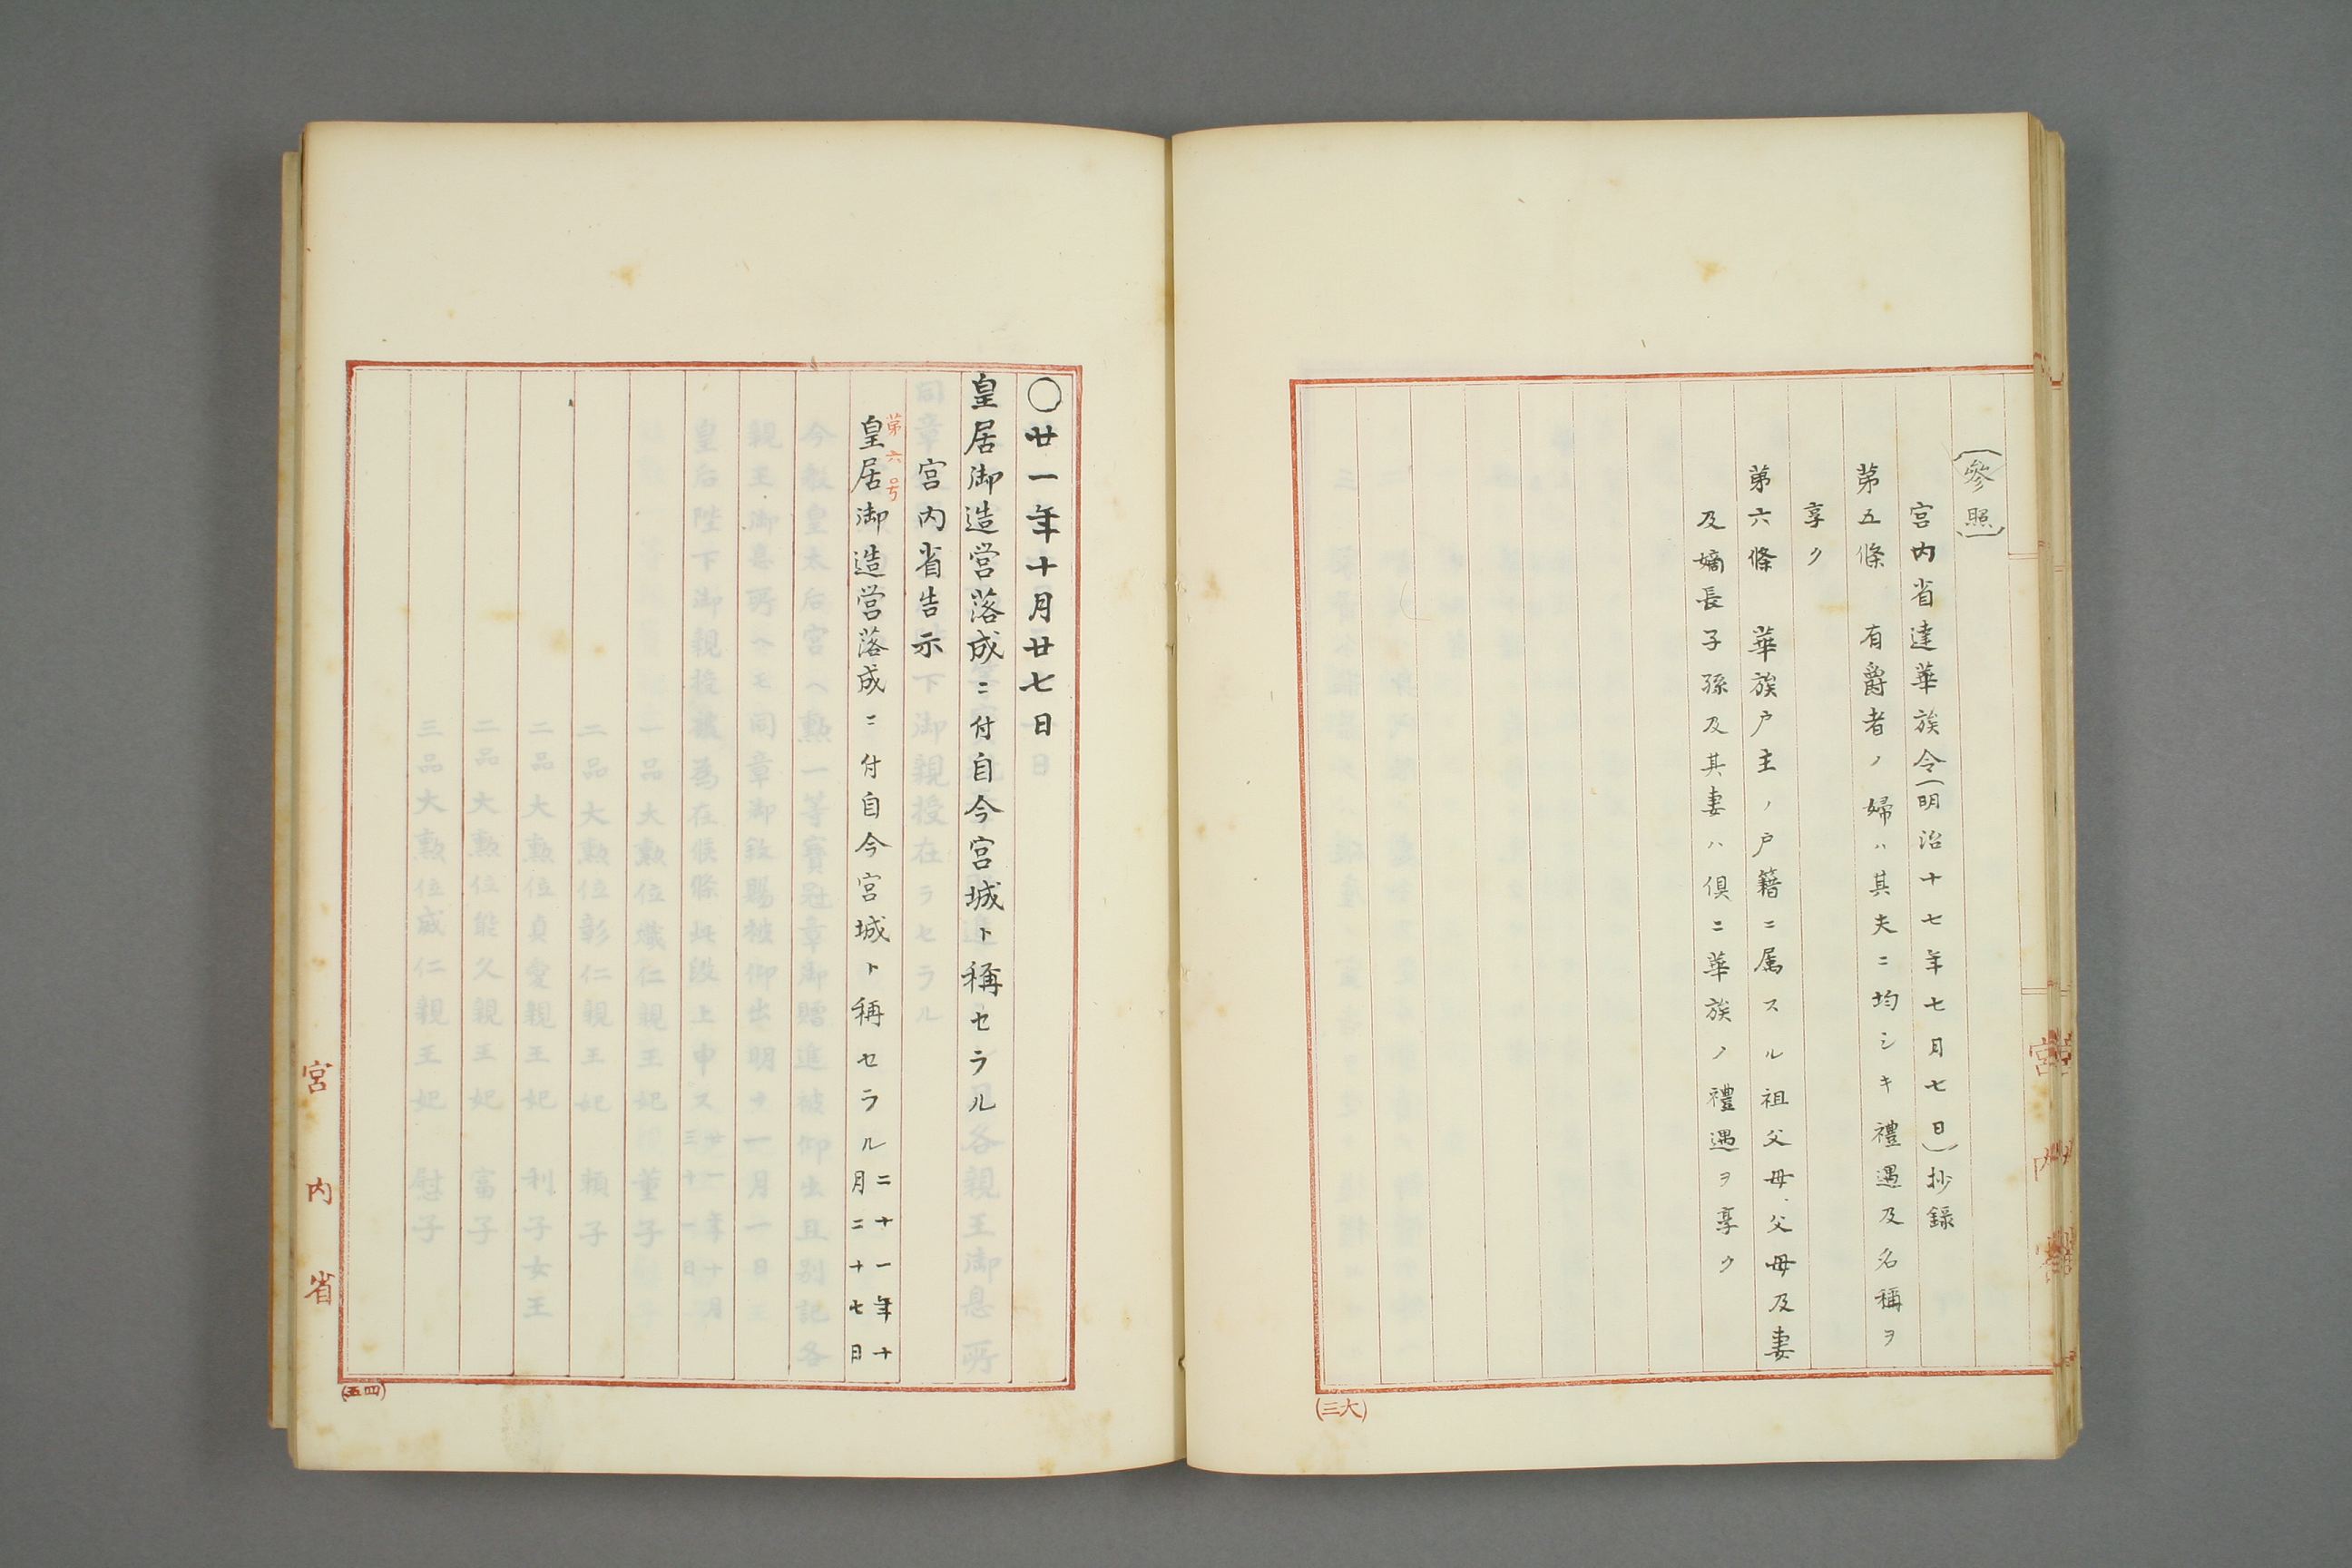 (參照)
宮内省達華族令(明治十七年七月七日)抄録
第五條　有爵者ノ婦ハ其夫ニ均シキ禮遇及名稱ヲ
享ク
第六條　華族戸主ノ戸籍ニ属スル祖父母父母及妻
及嫡長子孫及其妻ハ俱ニ華族ノ禮遇ヲ享ク
宮内省
○廿一年十月廿七日
皇居御造営落成ニ付自今宮城ト稱セラル
宮内省告示
第六号
皇居御造営落成ニ付自今宮城ト稱セラル
二十一年十
月二十七日
宮内省
(五四)